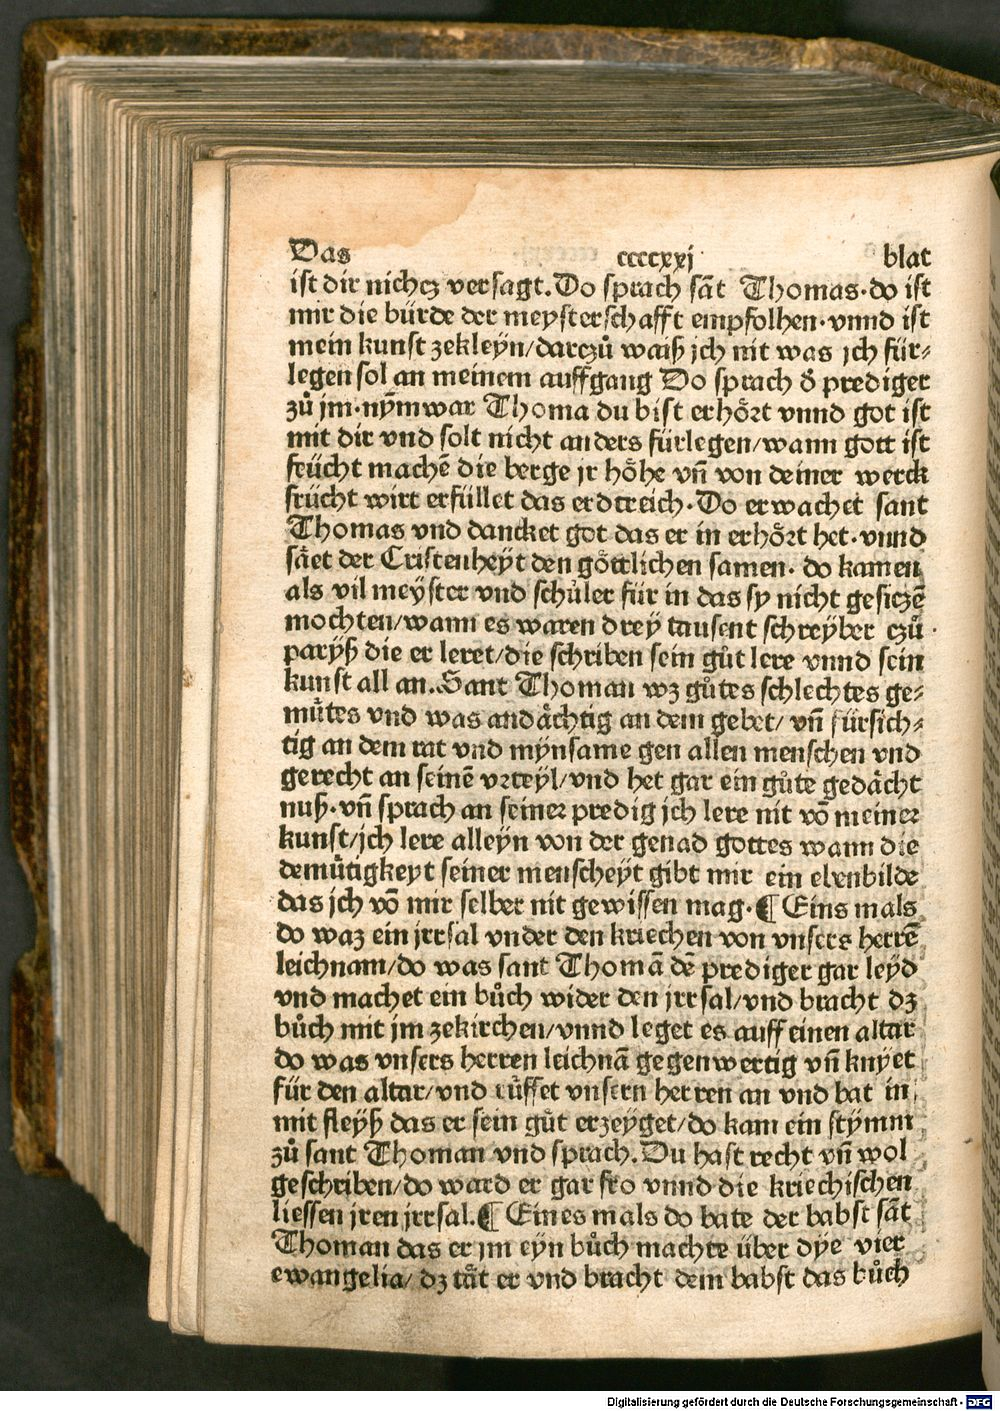 Das ccccxxj blat
ist dir nichcz versagt. Do sprach sāt Thomas· do ist
mir die bürde der meysterschafft empfolhen· vnnd ist
mein kunst zekleÿn/darczů waiß jch nit was jch für⸗
legen sol an meinem auffgang Do sprach d̕ prediger
zů jm· nȳmwar Thoma du bist erhöꝛt vnnd got ist
mit dir vnd solt nicht anders fürlegen/wann gott ist
feücht machē die berge jr höhe vn̄ von deiner werck
frücht wirt erfüllet das erdtreich· Do erwachet sant
Thomas vnd dancket got das er in erhöꝛt het· vnnd
säet der Cristenheÿt den göttlichen samen· do kamen
als vil meÿster vnd schůler für in das sy nicht gesiczē
mochten/wann es waren dreÿ tausent schreÿber czů
parÿß die er leret/die schriben sein gůt lere vnnd sein
kunst all an. Sant Thoman wz gůtes schlechtes ge⸗
můtes vnd was andächtig an dem gebet/ vn̄ fürsich⸗
tig an dem rat vnd mÿnsame gen allen menschen vnd
gerecht an seinē vꝛteÿl/vnd het gar ein gůte gedächt
nuß· vn̄ sprach an seineꝛ predig jch lere nit vō meineꝛ
kunst/jch lere alleÿn von der genad gottes wann die
demůtigkeyt seiner menscheÿt gibt mir ein ebenbilde
das jch vō mir selber nit gewissen mag· ¶ Eins mals
do waz ein jrrsal vnder den kriechen von vnsers herrē
leichnam/do was sant Thomā dē prediger gar leÿd
vnd machet ein bůch wider den jrrsal/vnd bracht dz
bůch mit jm zekirchen/vnnd leget es auff einen altar
do was vnsers herren leichnā gegenwertig vn̄ knÿet
für den altar/vnd růffet vnsern herren an vnd bat in
mit fleÿß das er sein gůt erzeÿget/do kam ein stÿmm
zů sant Thoman vnd sprach. Du hast recht vn̄ wol
geschriben/do ward er gar fro vnnd die kriechischen
liessen jren jrrsal. ¶ Eines mals do bate der babst sāt
Thoman das er jm eÿn bůch machte über dÿe vier
ewangelia/ dz tät er vnd bracht dem babst das bůch
Digitalisierung gefördert durch die Deutsche Forschungsgemeinschaft - DFG